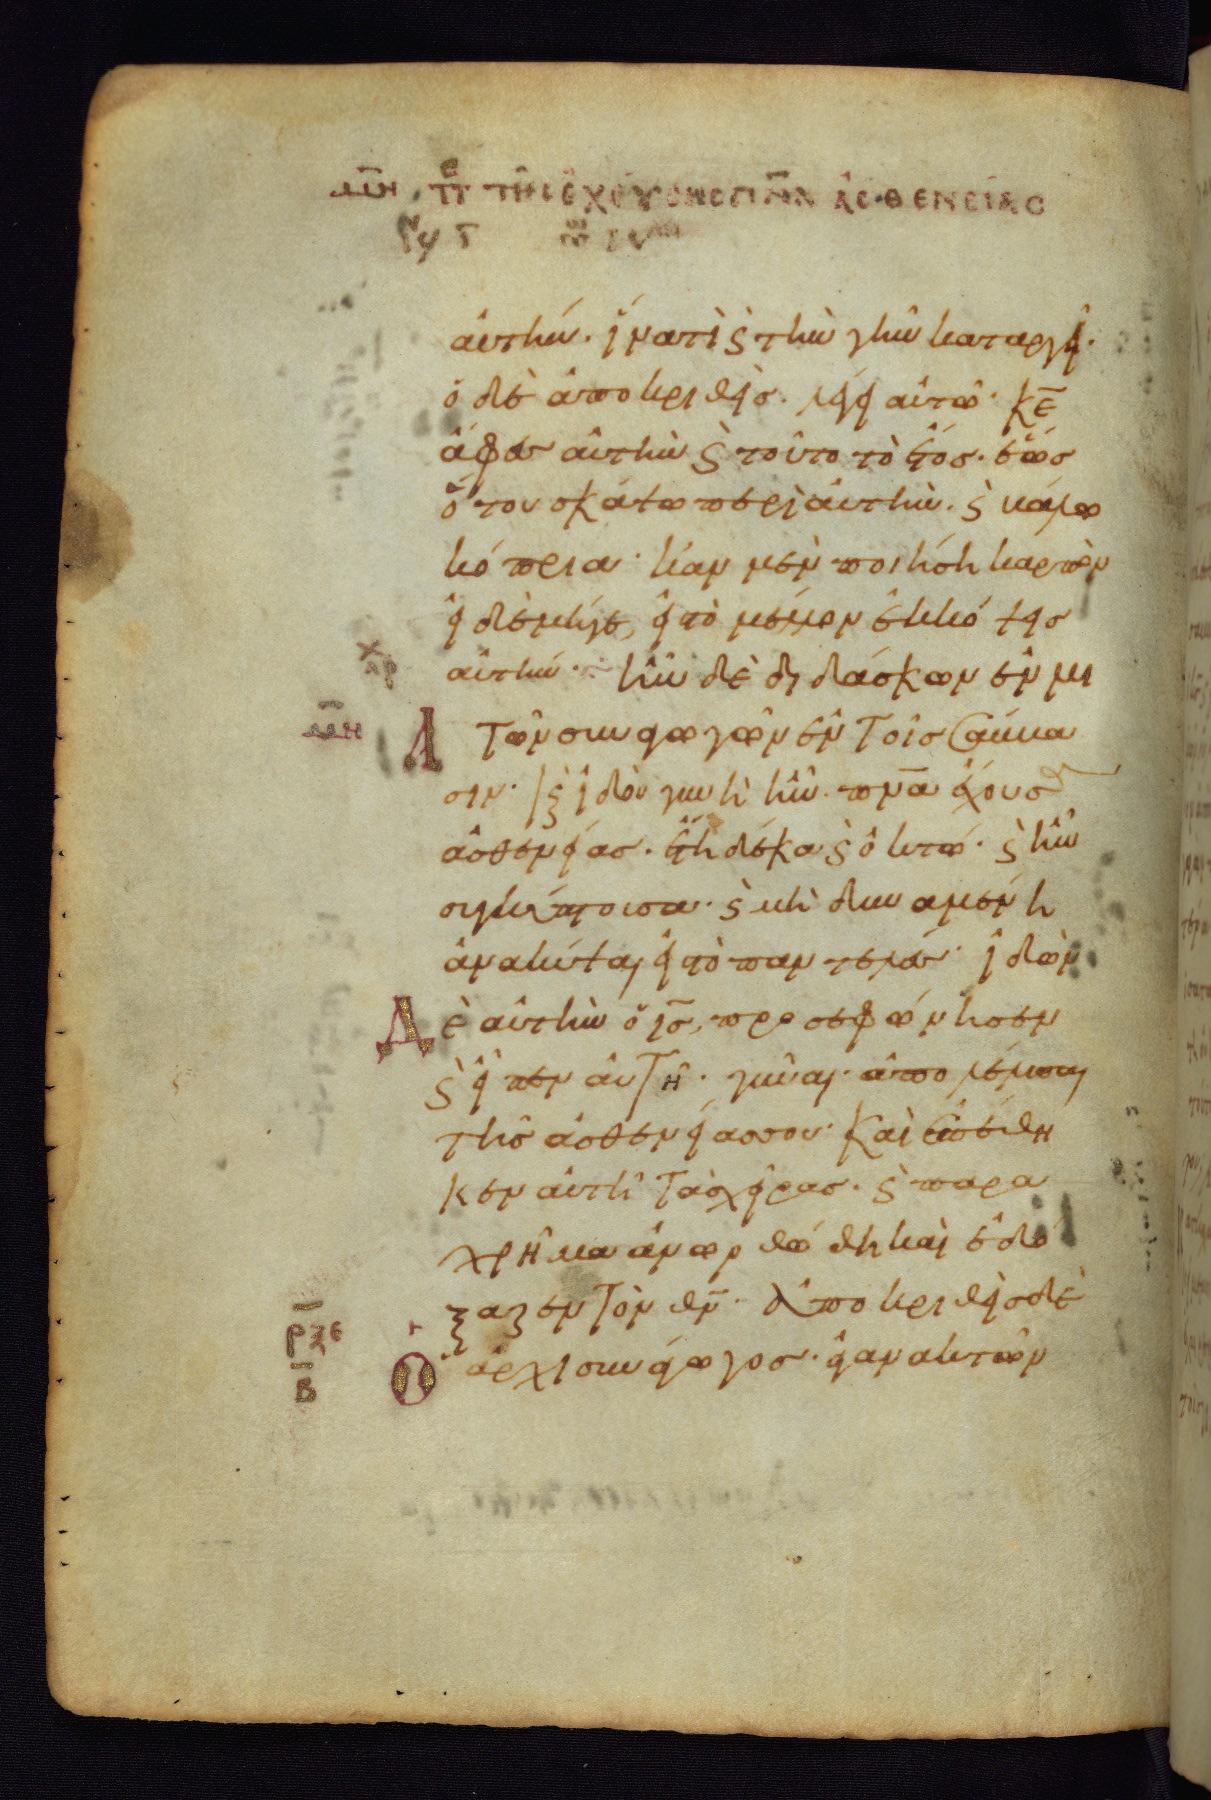 μη πε τῆς ἐχούσης πνα ἀσθενείας
αὐτήν· ἵνα τί ϛ τὴν γῆν καταργεῖ·
ὁ δὲ ἀποκριθεὶς· λέγει αὐτῶ· κε
ἄφες αὐτὴν ϛ τοῦτο τὸ ἔτος· ἕως
ὅτου σκάψω περὶ αὐτὴν· ϛ βάλω
κόπρια· κἂν μὲν ποιήση καρπὸν
εἰ δὲ μήγε, εἰς τὸ μέλλον ἐκκόψεις
αὐτήν· ἦν δὲ διδάσκων ἐν μι
ᾶ τῶν συναγωγῶν ἐν τοῖς σάββα
σιν· ϛ ἰδοὺ γυνὴ ἦν πνα ἔχουσα
ἀσθενείας· ἔτη δέκα ϛ ὀκτώ· ϛ ἦν
συγκύπτουσα· ϛ μὴ δυναμένη
ἀνακύψαι εἰς τὸ παντελές· ἰδὼν
Δὲ αὐτὴν ὁ ις, προσεφώνησεν
ϛ εἶπεν αὐτῆ· γύναι· ἀπολέλυσαι
τῆς ἀσθενείας σου· καὶ ἐπέθη
κεν αὐτῆ τὰς χεῖρας· ϛ παρα
χρῆμα ἀνωρθώθη καὶ ἐδό
ξαζεν τὸν θν· Ἀποκριθεὶς δὲ
Ὁ ἀρχισυνάγωγος· ἀγανακτῶν
μη
ρξε
β